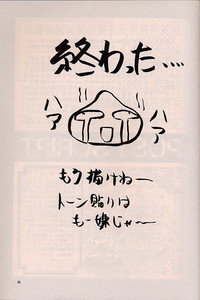 終わった....
ハァ
ハァ
もう描けねー
トーン貼りは
もー嫌じゃ〜